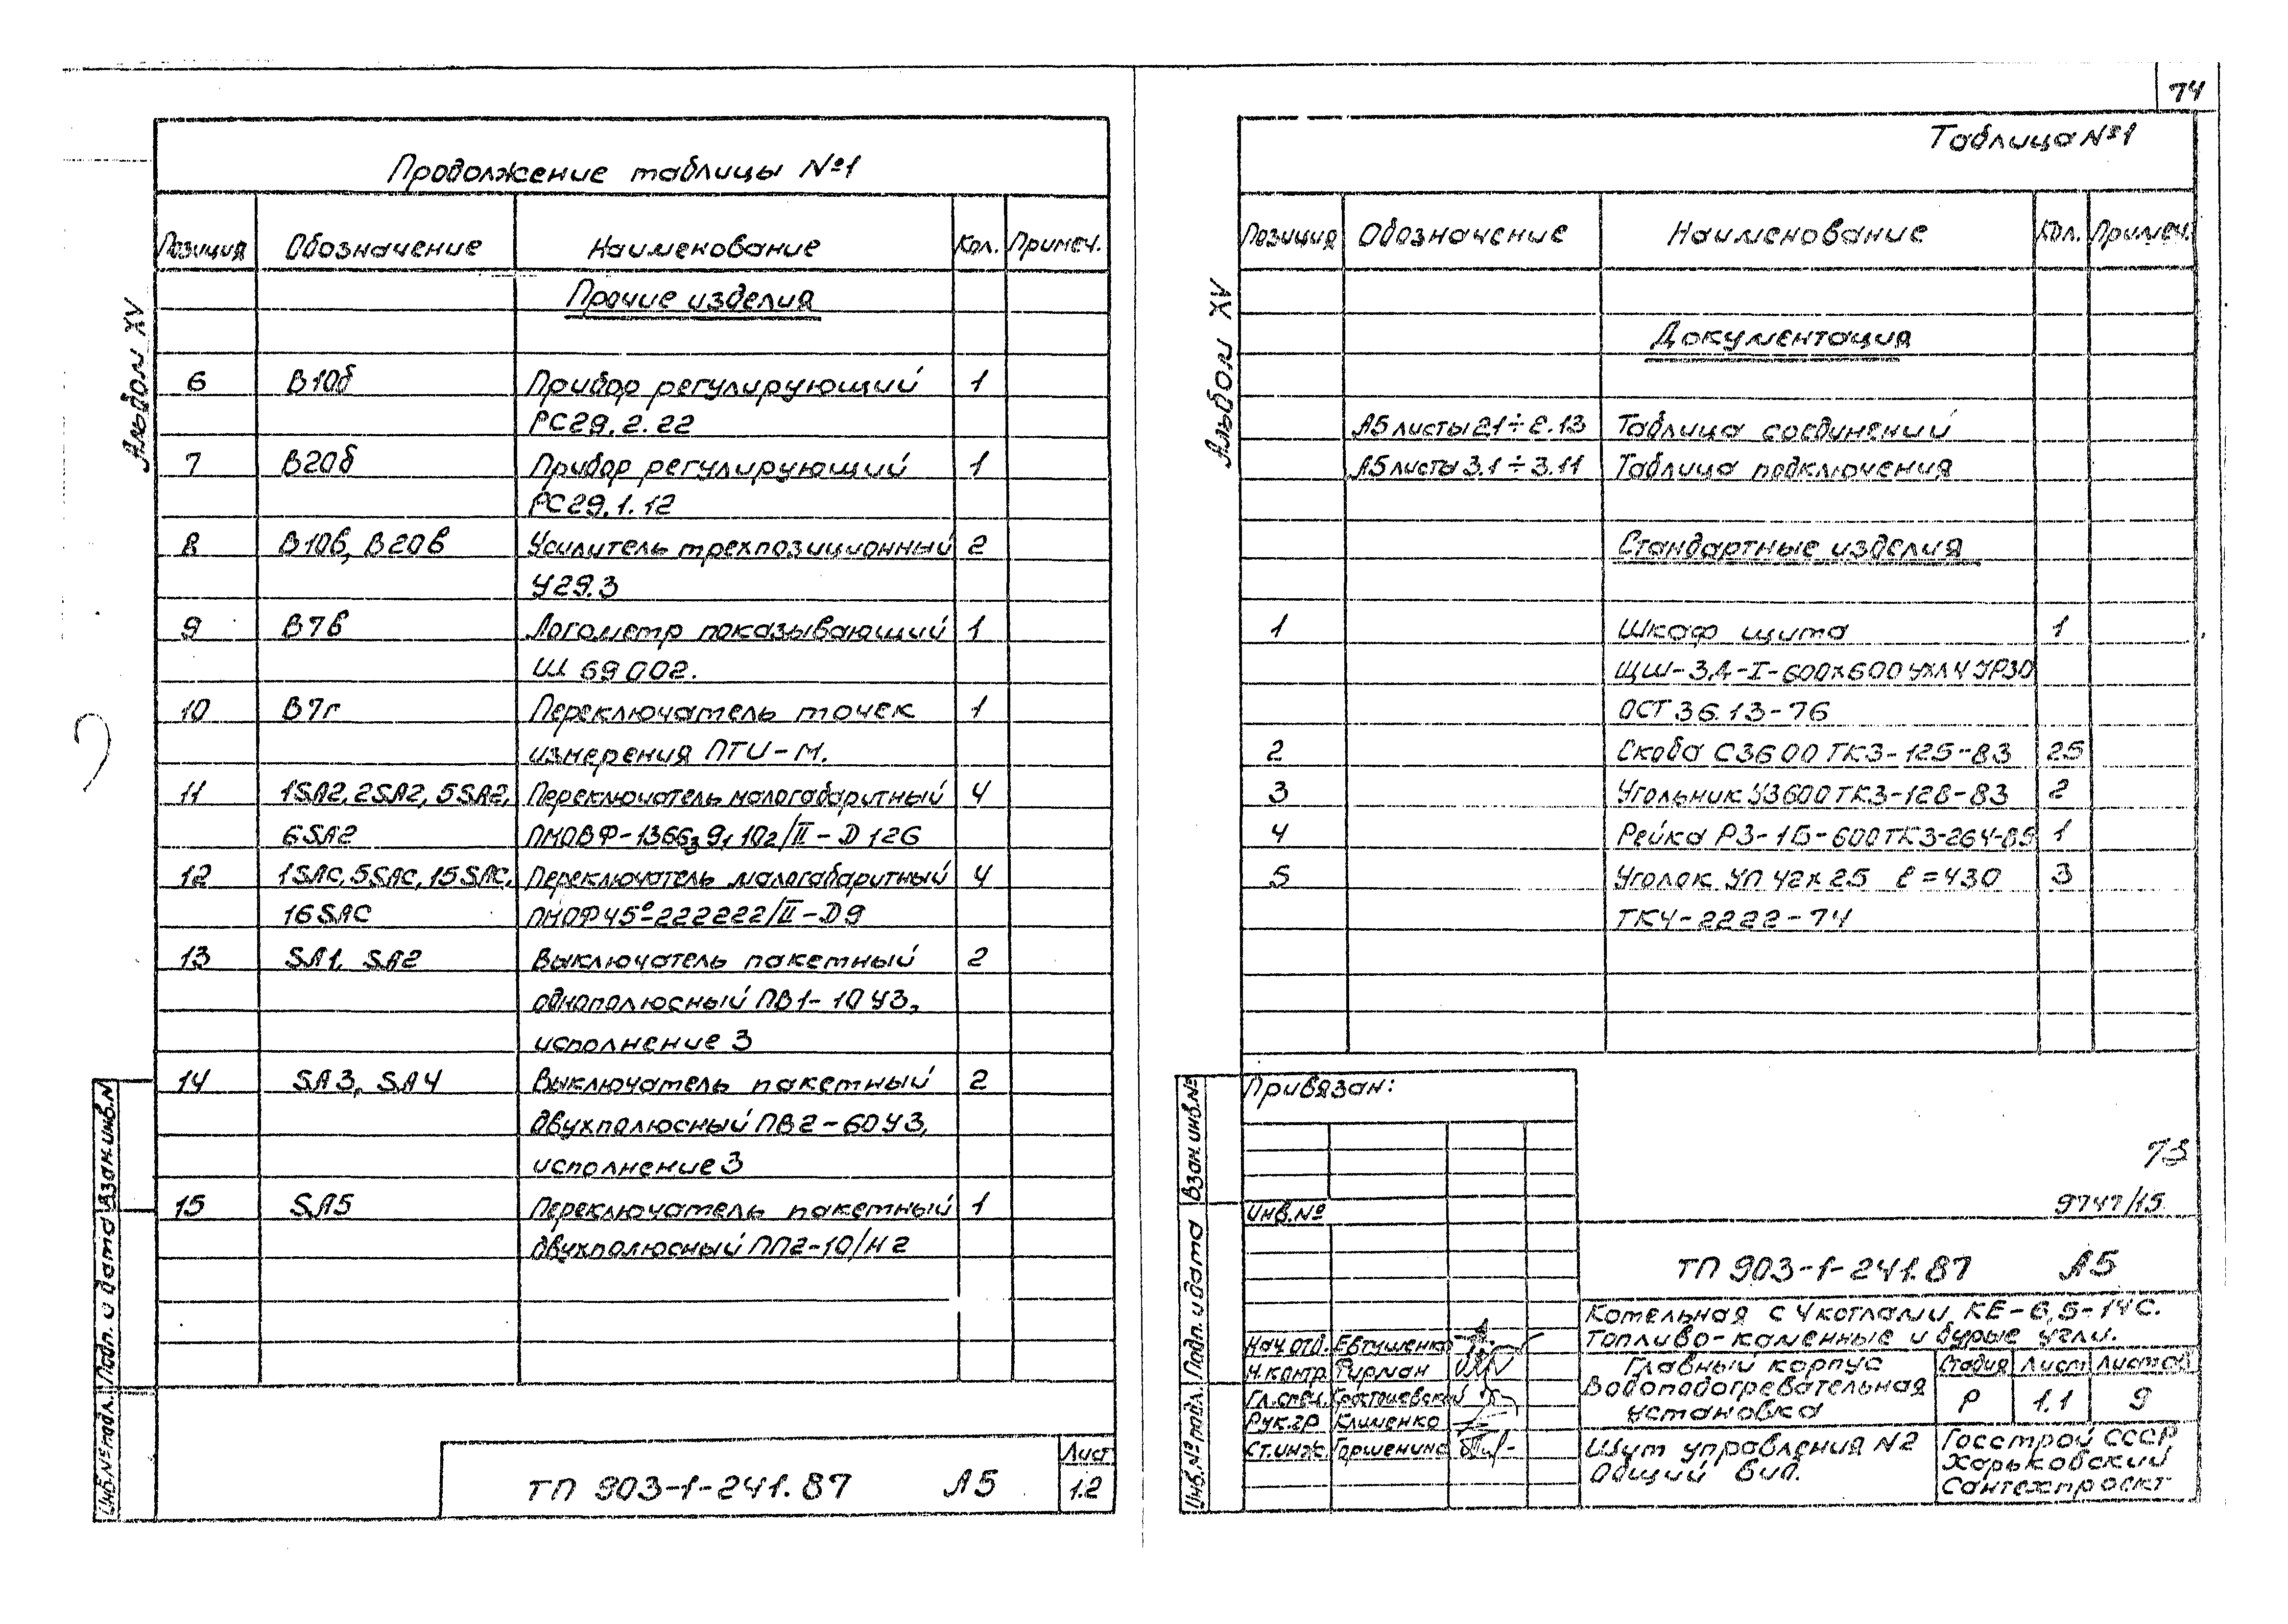 74
Продолжение таблицы №1
Позиция Обозначение Наименование Кол. Примеч.
Прочие изделия
6 В10б Прибор регулирующий 1
РС29.2.22
7 В20б Прибор регулирующий 1
РС29.1.12
8 В10в, В20в Усилитель трехпозиционный 2
У29.3
9 В7в Логометр показывающий 1
Ш 69002.
10 В7г Переключатель точек 1
измерения ПТИ-М.
11 1SA2, 2SA2, 5SA2, Переключатель малогабаритный 4
6SA2 ПМОВФ-1366₃9₁10₂/II-Д126
12 1SAC, 5SAC, 15SAC, Переключатель малогабаритный 4
16SAC ПМОФ45°-222222/II-Д9
13 SA1, SA2 Выключатель пакетный 2
однополюсный ПВ1-10У3,
исполнение 3
14 SA3, SA4 Выключатель пакетный 2
двухполюсный ПВ2-60У3,
исполнение 3
15 SA5 Переключатель пакетный 1
двухполюсный ПП2-10/Н2
Альбом XV
Взам.инв.N
Подп. и дата
Инв.№подл.
ТП 903-1-241.87 А5
Лист
1.2
Таблица №1
Позиция Обозначение Наименование Кол. Примеч.
Документация
А5 листы 2.1÷2.13 Таблица соединений
А5 листы 3.1÷3.11 Таблица подключения
Стандартные изделия
1 Шкаф щита 1
ЩШ-3Д-I-600х600 УХЛ4 УР30
ОСТ 36.13-76
2 Скоба С3600 ТК3-125-83 25
3 Угольник У3600 ТК3-128-83 2
4 Рейка Р3-1Б-600 ТК3-264-89 1
5 Уголок УП 42х25 ℓ=430 3
ТК4-2222-74
Альбом XV
Взам.инв.№
Подп. и дата
Инв.№подл.
Привязан:
Инв.№
73
9747/15
ТП 903-1-241.87 А5
Котельная с 4 котлами КЕ-6,5-14С.
Топливо-каменные и бурые угли.
Нач.отд. Евтушенко
Н.контр. Фирман
Гл.спец.
Рук.гр Клименко
Ст.инж. Горшенина
Главный корпус
Водоподогревательная
установка
Стадия Лист Листов
Р 1.1 9
Щит управления N2
Общий вид.
Госстрой СССР
Харьковский
Сантехпроект